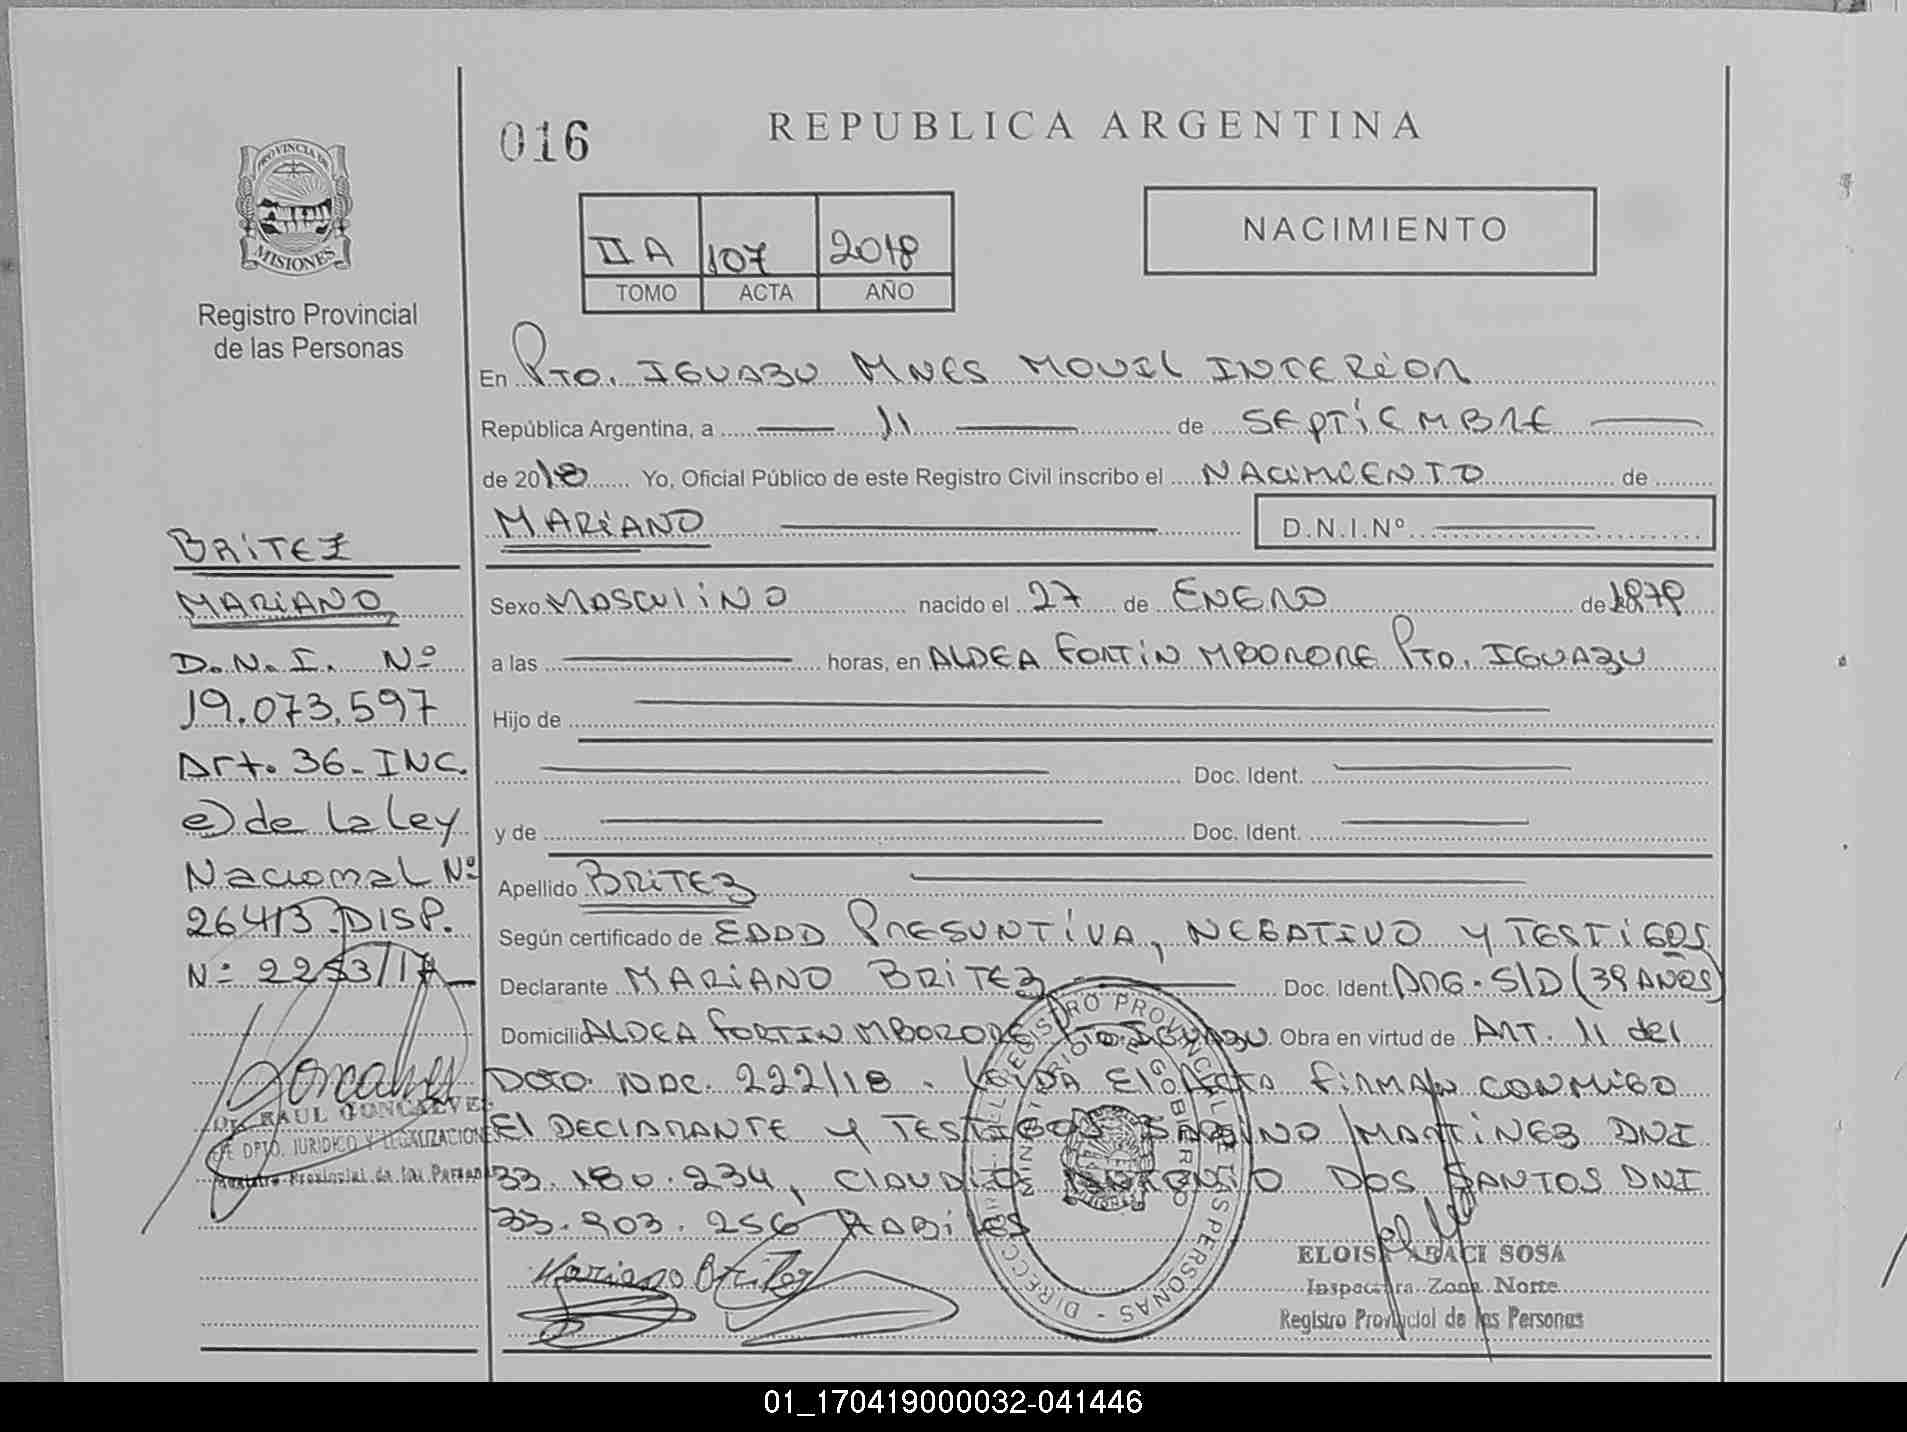 PROVINCIA DE
MISIONES
Registro Provincial
de las Personas
BRITEZ
MARIANO
D.N.I. Nº
19.073.597
Art. 36. INC.
e) de la Ley
Nacional Nº
26413. DISP.
Nº 2253/17
RAUL GONCALVES
DPTO. JURIDICO Y LEGALIZACIONES
Registro Provincial de las Personas
016
REPUBLICA ARGENTINA
II A 107 2018
TOMO ACTA AÑO
NACIMIENTO
En Pto. IGUAZU MNES MOVIL INTERIOR
República Argentina, a 11 de SEPTIEMBRE
de 2018 Yo, Oficial Público de este Registro Civil inscribo el NACIMIENTO de
MARIANO D.N.I.Nº
Sexo MASCULINO nacido el 27 de ENERO de 1979
a las horas, en ALDEA FORTIN MBORORE Pto. IGUAZU
Hijo de
Doc. Ident.
y de Doc. Ident.
Apellido BRITEZ
Según certificado de EDAD PRESUNTIVA, NEGATIVO Y TESTIGOS
Declarante MARIANO BRITEZ Doc. Ident. ARG. S/D (39 AÑOS)
Domicilio ALDEA FORTIN MBORORE Pto. IGUAZU Obra en virtud de ART. 11 del
DCTO. 222/18. LEIDA El ACTA FIRMAN CONMIGO
El DECLARANTE Y TESTIGOS SABINO MARTINEZ DNI
33.180.234, CLAUDIO DOS SANTOS DNI
33.903.256 HABILES
Mariano Britez
DIRECCION DEL REGISTRO PROVINCIAL DE LAS PERSONAS
MINISTERIO DE GOBIERNO
ELOISA ARACI SOSA
Inspectora Zona Norte
Registro Provincial de las Personas
01_170419000032-041446